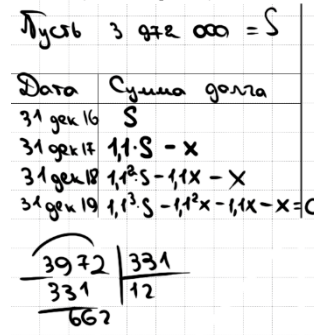 Пусть 3 972 000 = S
Дата Сумма долга
31 дек 16 S
31 дек 17 1,1·S - x
31 дек 18 1,1²·S - 1,1x - x
31 дек 19 1,1³·S - 1,1²x - 1,1x - x = 0
3972 | 331
331 | 12
662